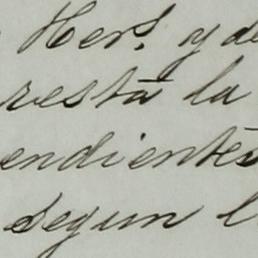 Hers. y de
resta la
endientes
segun l